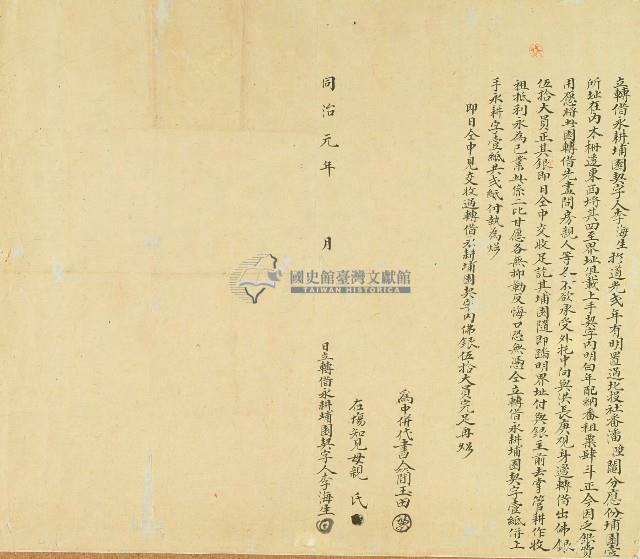 立轉借永耕埔園契字人李海生於道光弍年有明置過北投社番潘 鬮分應份埔園壹
所址在內木柵過東西埒其四至界址俱載上手契字內明白年配納番租粟肆斗正今因乏銀費
用愿將此園轉借先盡問房親人等各不欲承受外托中向與洪長庚观身邊轉借出佛銀
伍拾大員正其銀即日仝中交收足訖其埔園隨即踏明界址付與銀主前去掌管耕作收
租抵利永為己業此係二比甘愿各無抑勒反悔口恐無憑仝立轉借永耕埔園契字壹紙併上
手永耕字壹紙共弍紙付執為炤
即日仝中見交收過轉借永耕埔園契字內佛銀伍拾大員完足再炤
為中併代書人簡玉田
在塲知見母親 氏
同治元年 月 日立轉借永耕埔園契字人李海生
國史館臺灣文獻館
TAIWAN HISTORICA